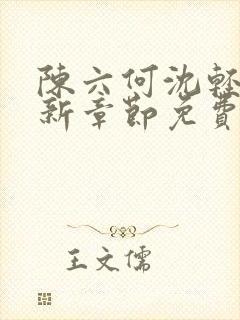 陳六何沈軽
新章節免費
王文儒